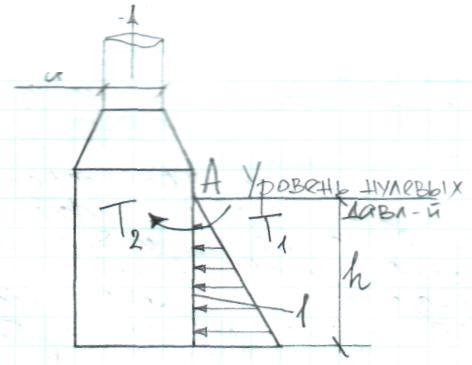 А Уровень нулевых
давл-й
T₂
T₁
h
1